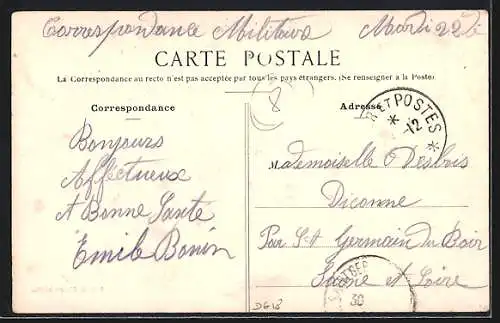 Correspondance Militaire Mardi 22 Xe
CARTE POSTALE
La Correspondance au recto n'est pas acceptée par tous les pays étrangers. (Se renseigner à la Poste)
8
Correspondance
Adresse
ET POSTES
* 12 *
Bonjours
Affectueux
et Bonne Santé
Emile Bonin
Mademoiselle Desbois
Diconne
Par St Germain du Bois
Saône et Loire
30